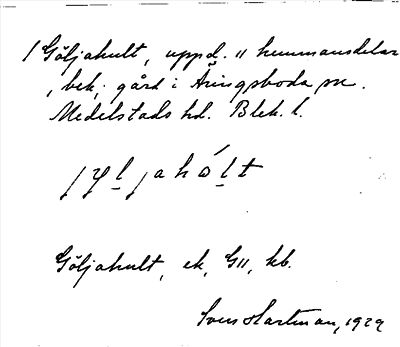 / Göljahult, uppd. 11 hemmansdelar
, bek. gård i Åringsboda sn.
Medelstads hd. Blek. l.
jyljahólt
Göljahult, ek, G11, kb.
Sven Hartman, 1929